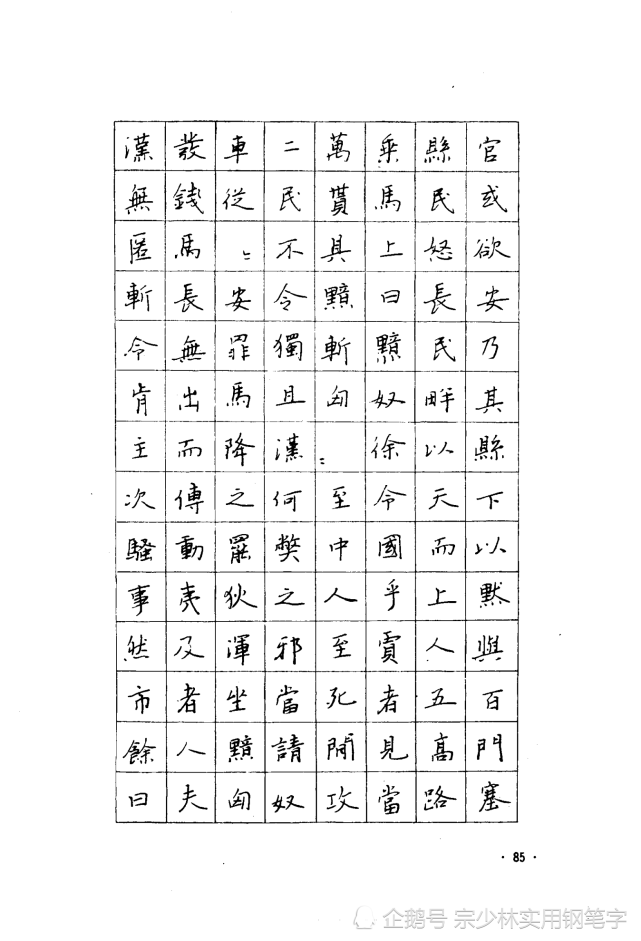 漢發車二萬乘縣官
無錢從民貰馬民或
匿馬〻不具上怒欲
斬長安令黯曰長安
令無罪獨斬黯民乃
肯出馬且匈奴畔其
主而降漢〻徐以縣
次傳之何至令天下
騷動罷獘中國而以
事夷狄之人乎上默
然及渾邪至賈人與
市者坐當死者五百
餘人黯請閒見高門
曰夫匈奴攻當路塞
· 85 ·
企鹅号 宗少林实用钢笔字